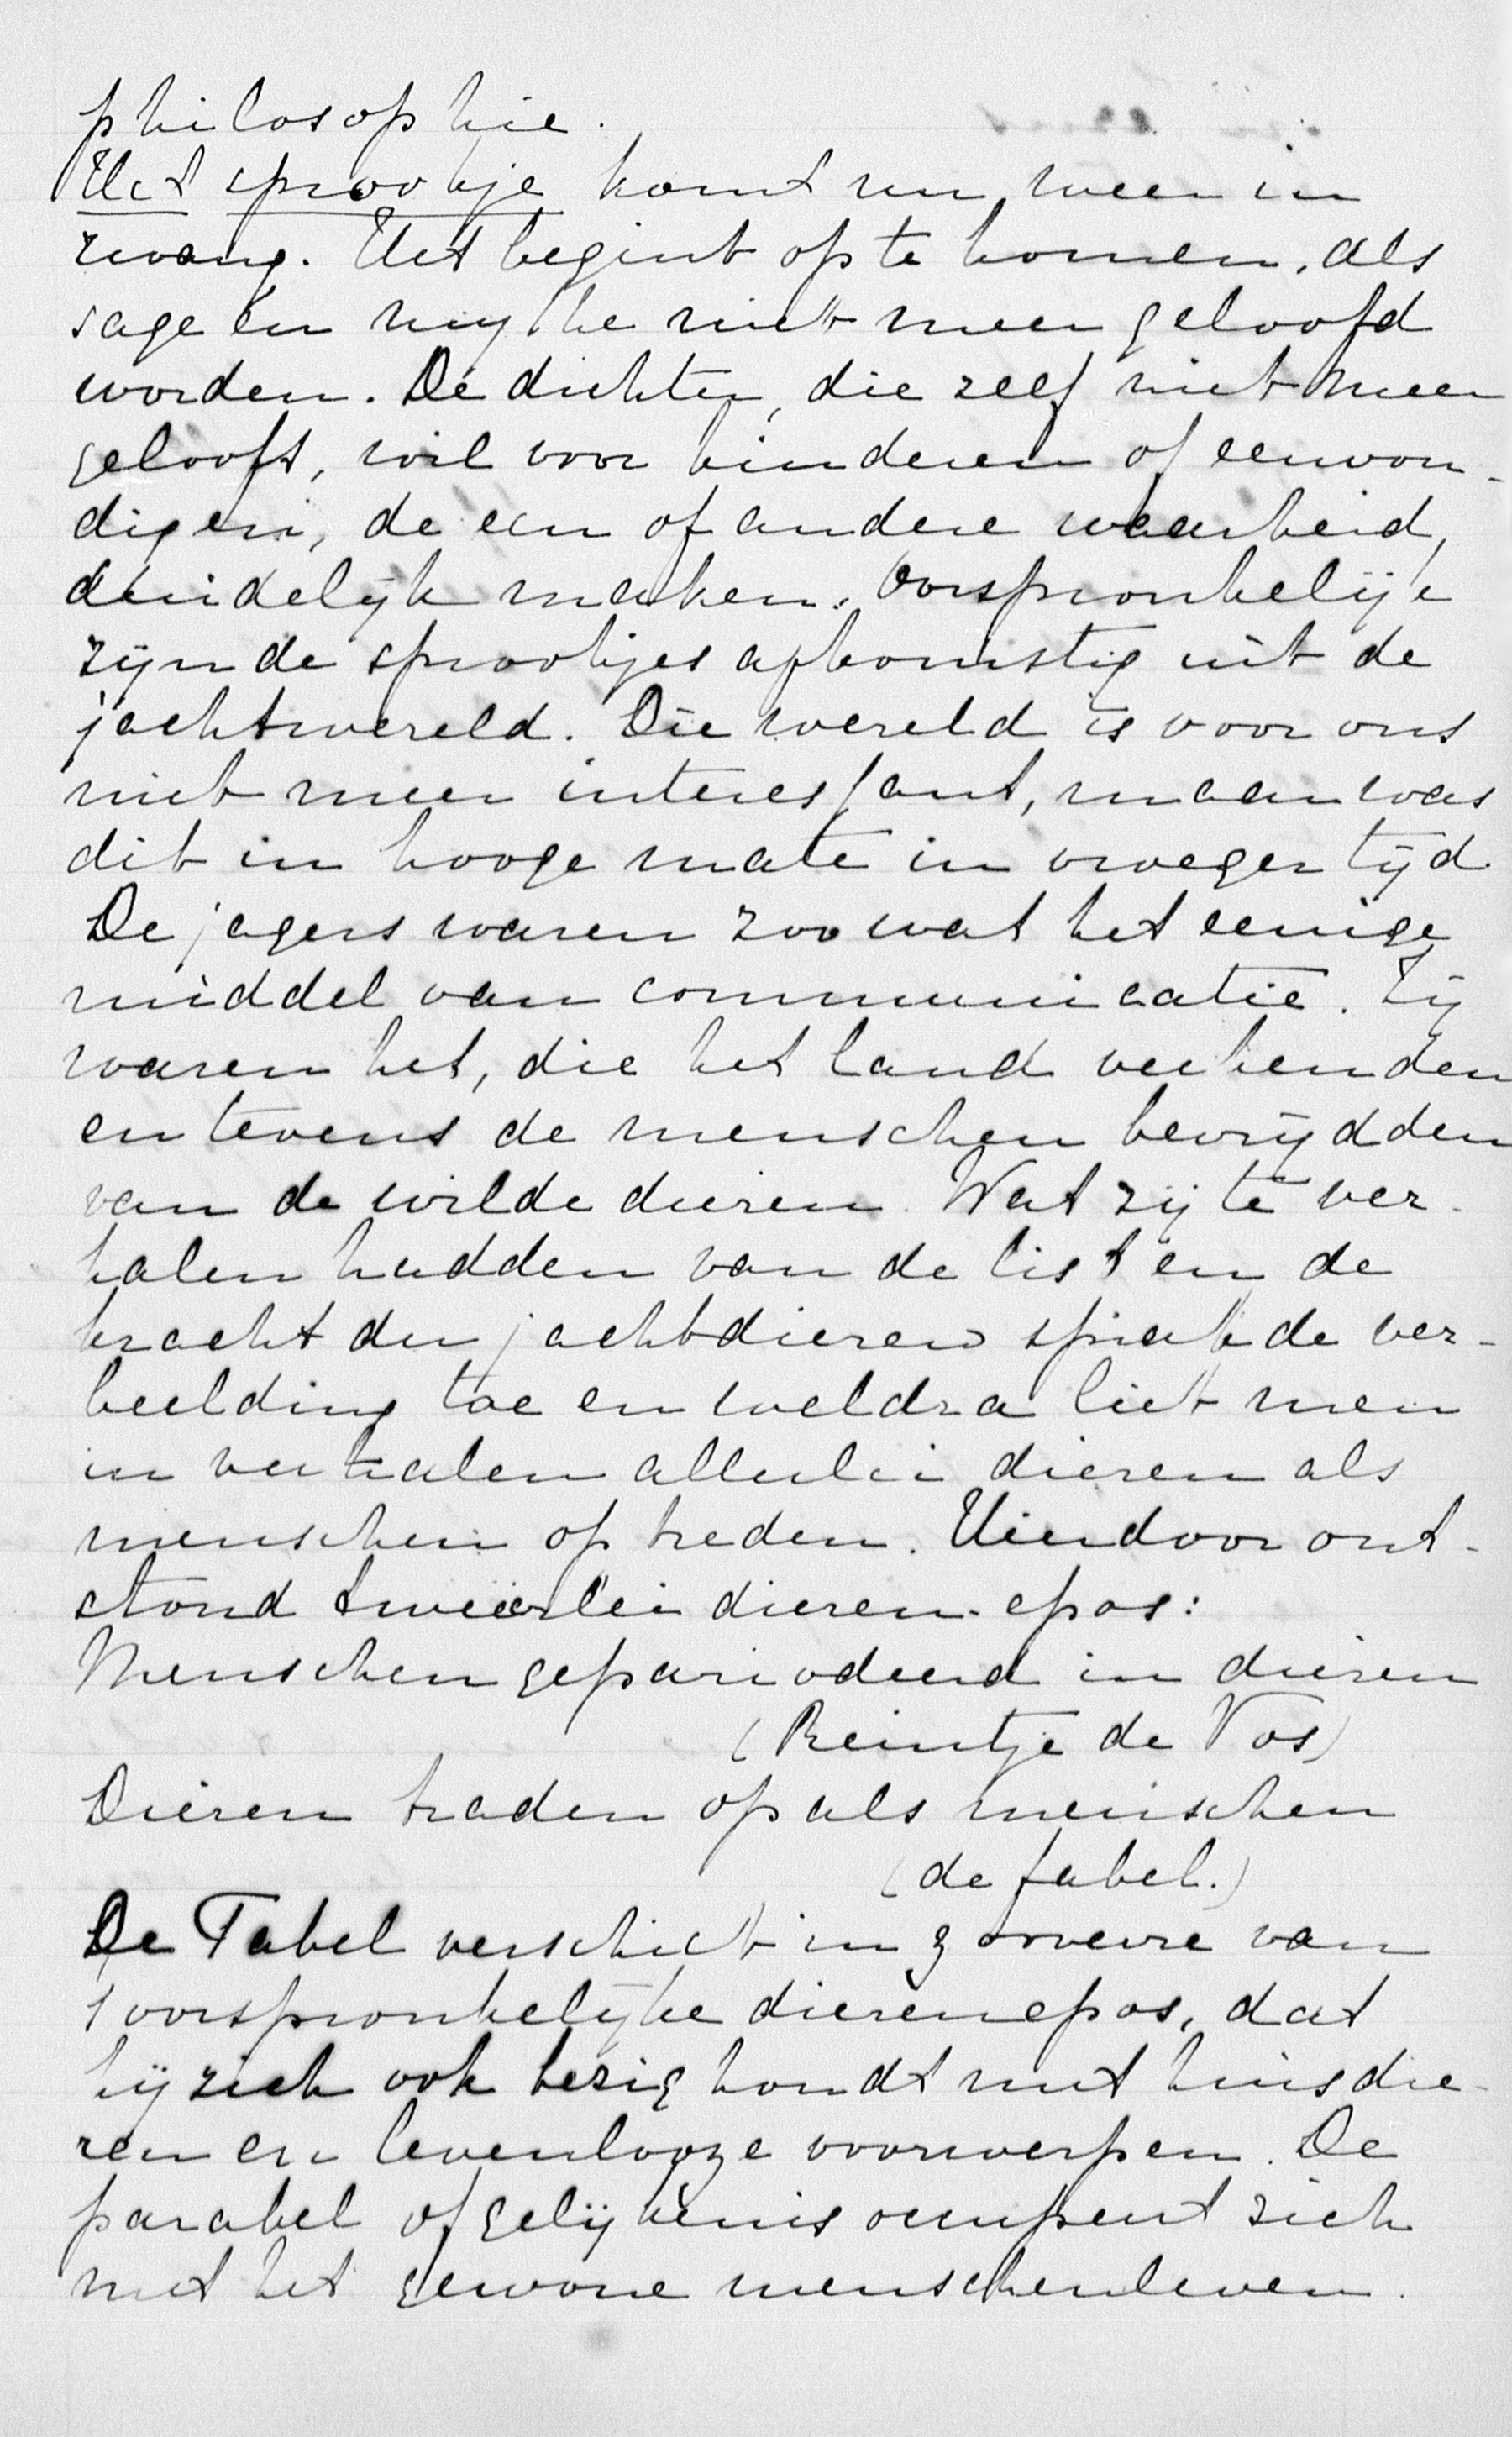 philosophie.
Het sprookje komt nu meer in
zwang. Het begint op te komen, als
sage en mythe niet meer geloofd
worden. De dichter, die zelf niet meer
gelooft, wil voor kinderen of eenvou-
digen, de een of andere waarheid,
duidelijk maken. Oorspronkelijk
zijn de sprookjes afkomstig uit de
jachtwereld. Die wereld is voor ons
niet meer interessant, maar was
dit in hooge mate in vroeger tijd.
De jagers waren zoo wat het eenige
middel van communicatie. Zij
waren het, die het land verkenden
en tevens de menschen bevrijdden
van de wilde dieren. Wat zij te ver-
halen hadden van de list en de
kracht der jachtdieren sprak de ver-
beelding toe en weldra liet men
in verhalen allerlei dieren als
menschen op treden. Hierdoor ont-
stond tweeërlei dieren-epos:
Menschen geparodieerd in dieren
(Reintje de Vos)
Dieren traden op als menschen
(de fabel.)
De Fabel verschilt in zooverre van
't oorspronkelijke dierenepos, dat
hij zich ook bezig houdt met huisdie-
ren en levenlooze voorwerpen. De
parabel of gelijkenis occupeert zich
met het gewone menschenleven.